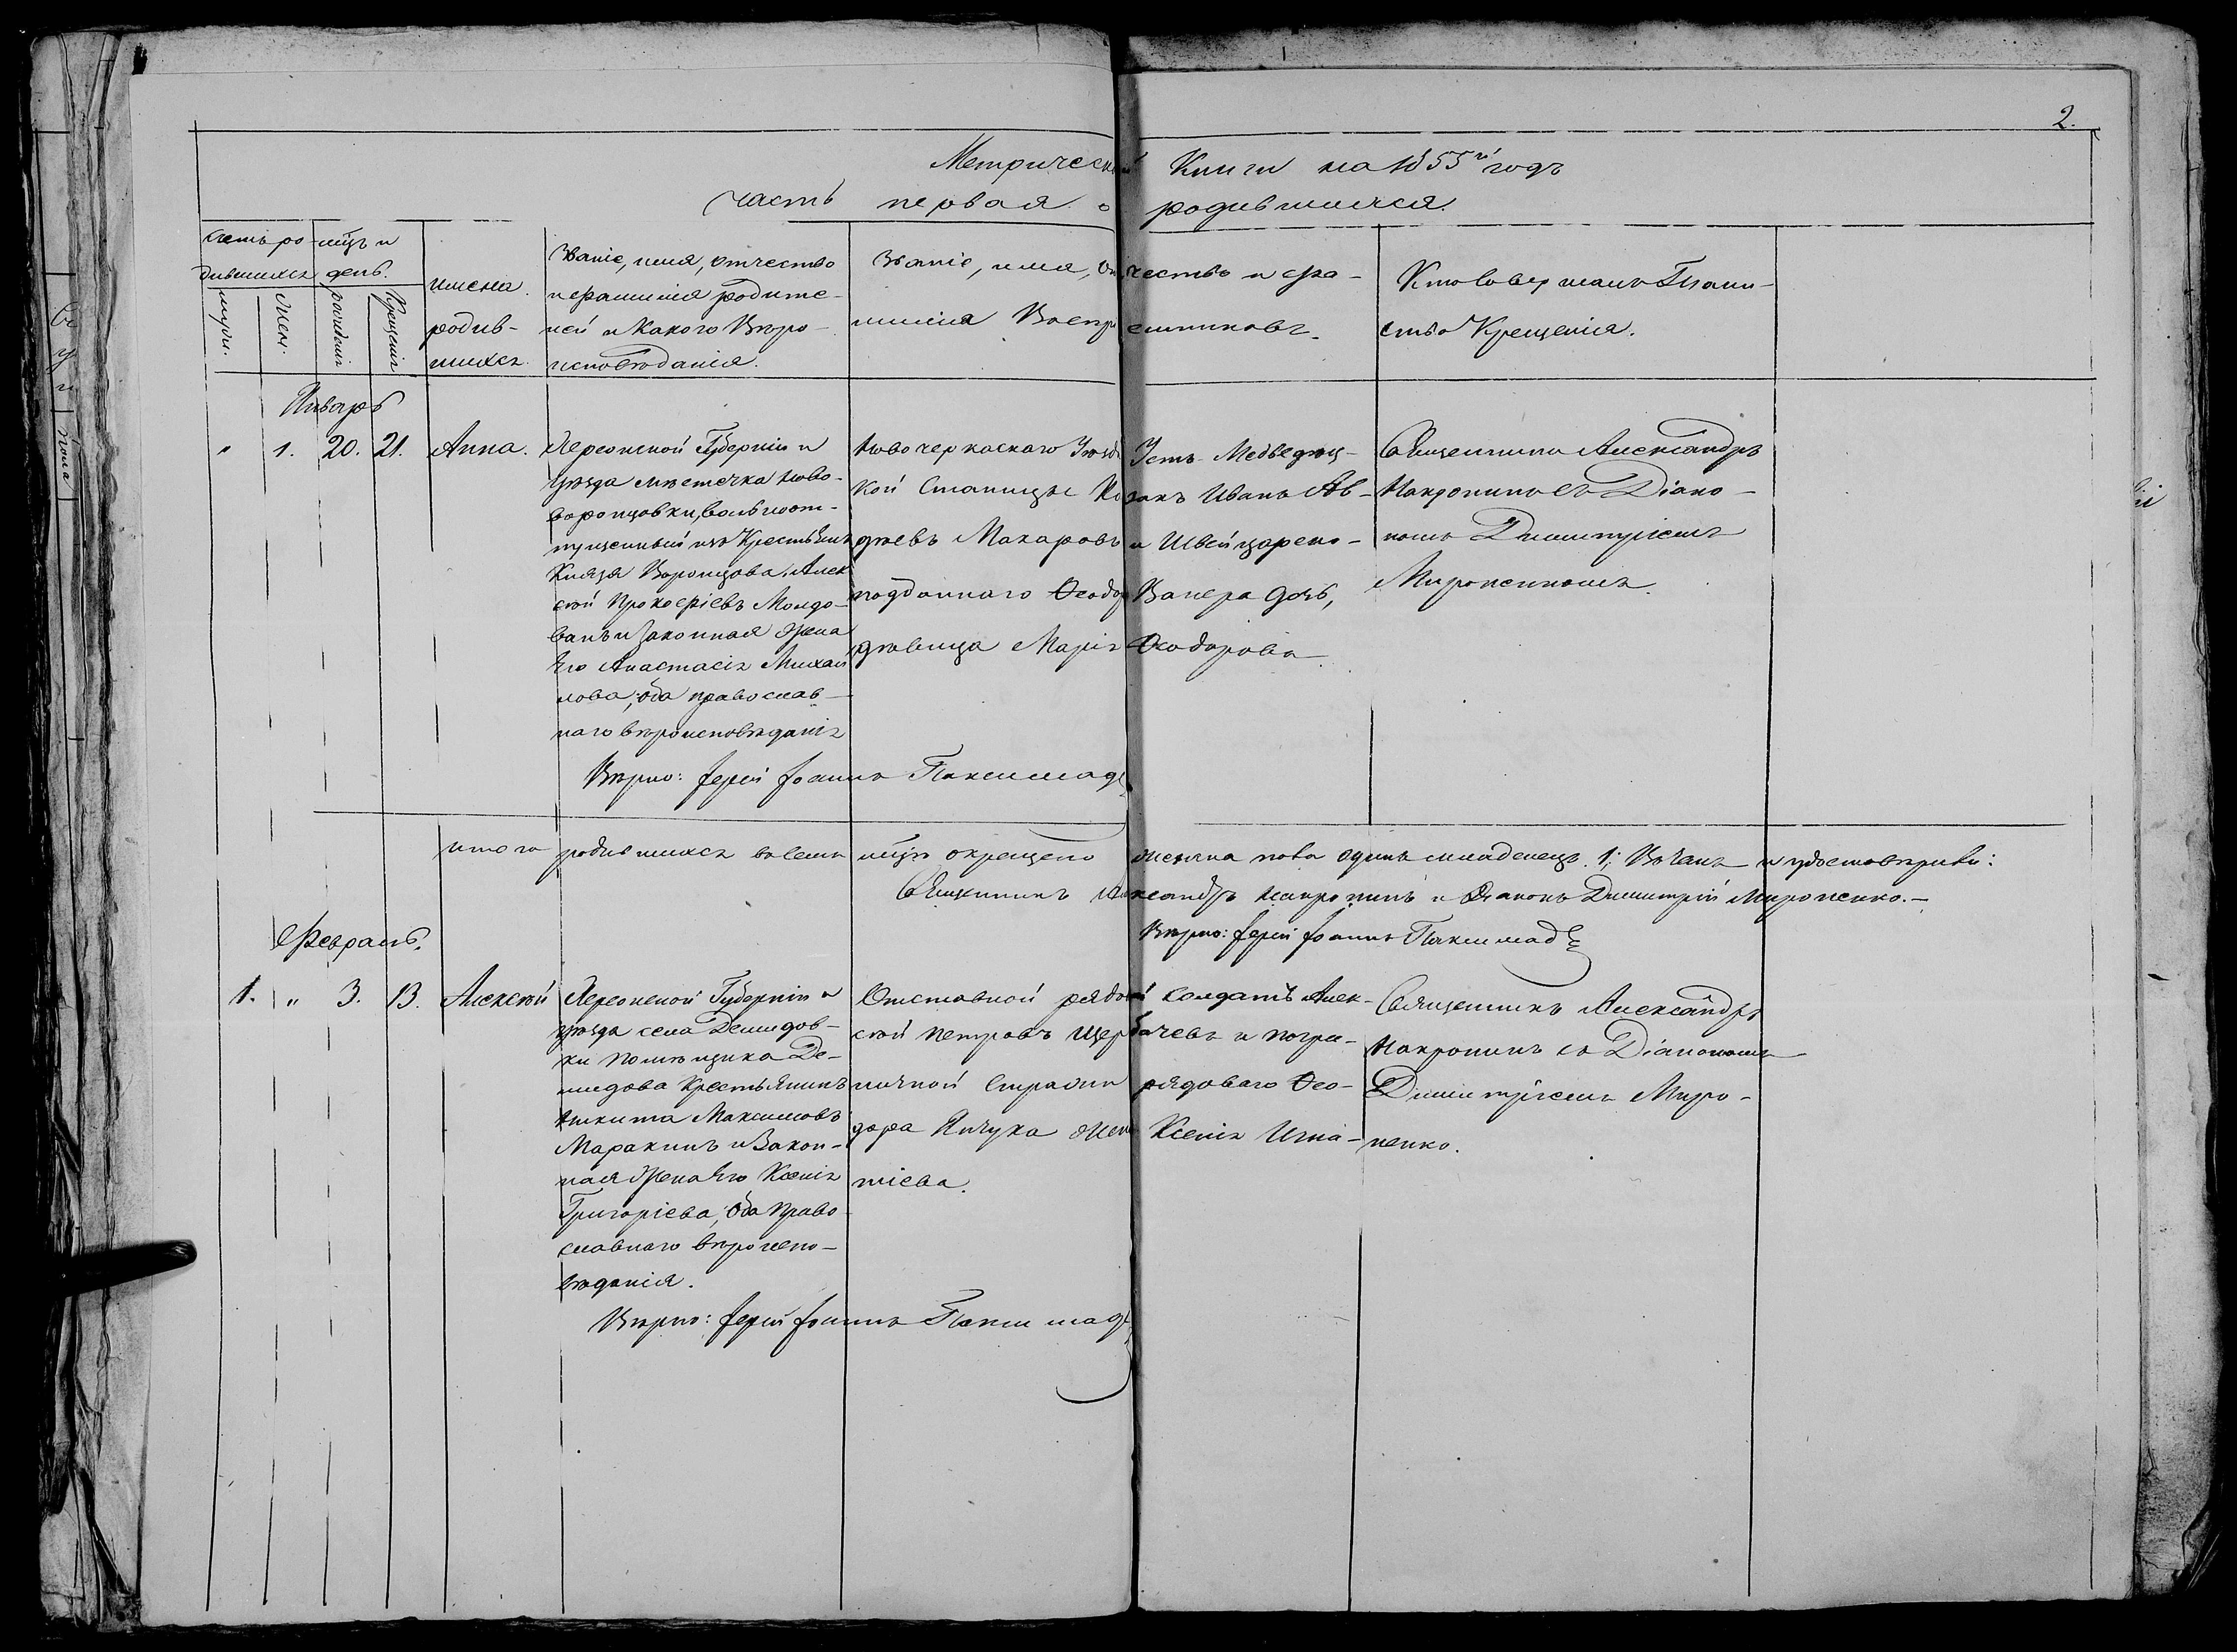 2.
Метрической Книги на 1855й годъ
часть первая о родившихся.
счетъ ро-
дившихся
мцъ и
день.
мужс.
женс.
рожденія
Крещенія
имена
родив-
шихся.
Званіе, имя, отчество
и фамилія родите-
лей и Какого Вѣро-
исповѣданія.
Званіе, имя, отчество и фа-
милія Воспріемниковъ.
Кто совершалъ Таин-
ство Крещенія.
Январь
" 1. 20. 21. Анна.
Херсонской Губерніи и
уѣзда мѣстечка Ново-
воронцовки, вольноот-
пущенный изъ Крестьянъ
Князя Воронцова, Алек
сѣй Прокофіевъ Молдо-
ванъ и Законная жена
Его Анастасія Михай
лова, оба православ-
наго вѣроисповѣданія
Новочеркаскаго Уѣзда Усть-Медвѣдиц-
кой Станицы Козакъ Иванъ Ав-
дѣевъ Макаровъ и Швейцарско-
подданнаго Ѳеодора Ванера дочь,
дѣвица Марія Ѳеодорова.
Священникъ Александръ
Накропинъ съ Діако-
номъ Димитріемъ
Мироненкомъ.
Вѣрно: Іерей Іоаннъ Паксимад
итого родившихся въ семъ мцѣ окрещено женска пола одинъ младенецъ. 1; Въ чемъ и удостовѣряемъ:
Священникъ Александръ Накропинъ и Діаконъ Димитрій Мироненко.-
Вѣрно: Іерей Іоаннъ Паксимад
Февраль.
1. " 3. 13. Алексѣй
Херсонской Губерніи и
уѣзда села Демидов-
ки помѣщика Де-
мидова Крестьянинъ
Никита Максимовъ
Маракинъ и Закон-
ная Жена Его Ксенія
Григоріева, Оба Право
славнаго вѣроиспо-
вѣданія.
Отставной рядовой солдатъ Алек-
сѣй Петровъ Щербачевъ и погра-
ничной Стражи рядоваго Ѳео-
дора Янчука жена Ксенія Игна-
тіева.
Священникъ Александръ
Накропинъ съ Діакономъ
Димитріемъ Миро-
ненко.
Вѣрно: Іерей Іоаннъ Паксимад